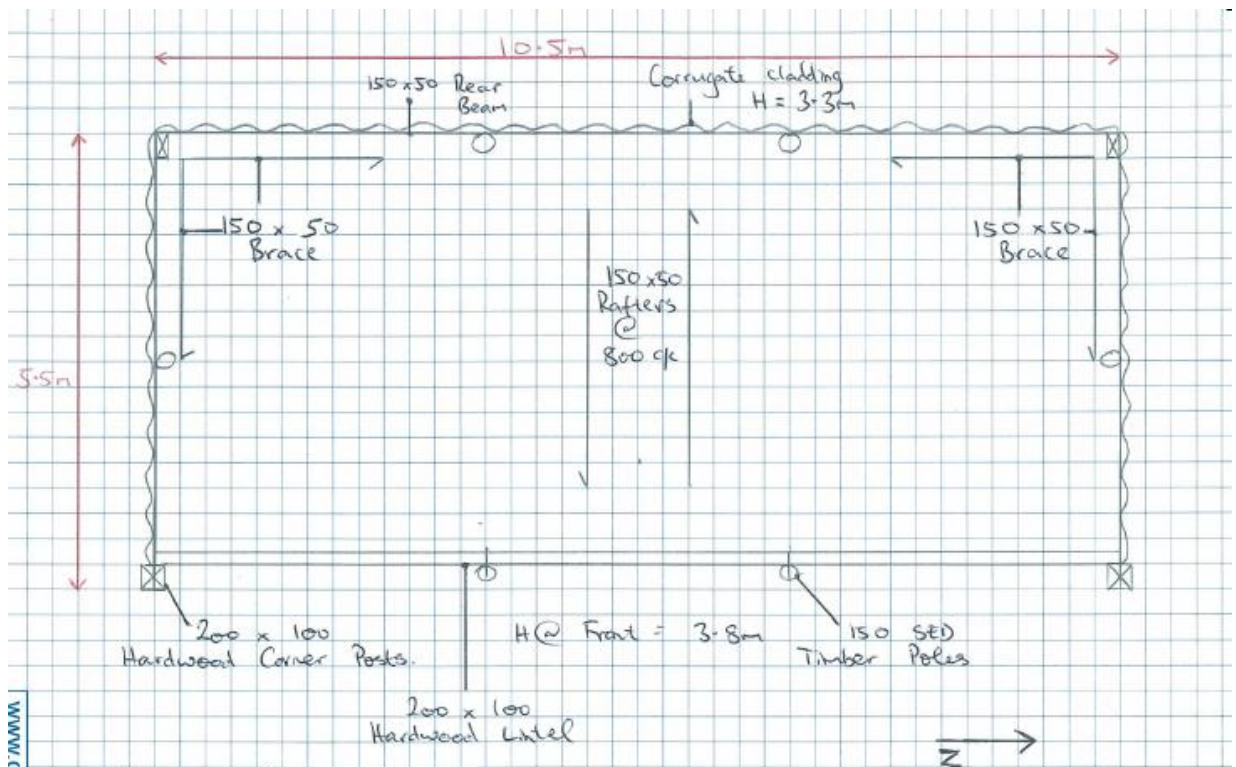 10.5m
150x50 Rear
Beam
Corrugate cladding
H = 3.3m
150 x 50
Brace
150 x 50
Brace
150x50
Rafters
@
800 c/c
5.5m
200 x 100
Hardwood Corner Posts.
H@ Front = 3.8m
150 SED
Timber Poles
200 x 100
Hardwood Lintel
N
www.